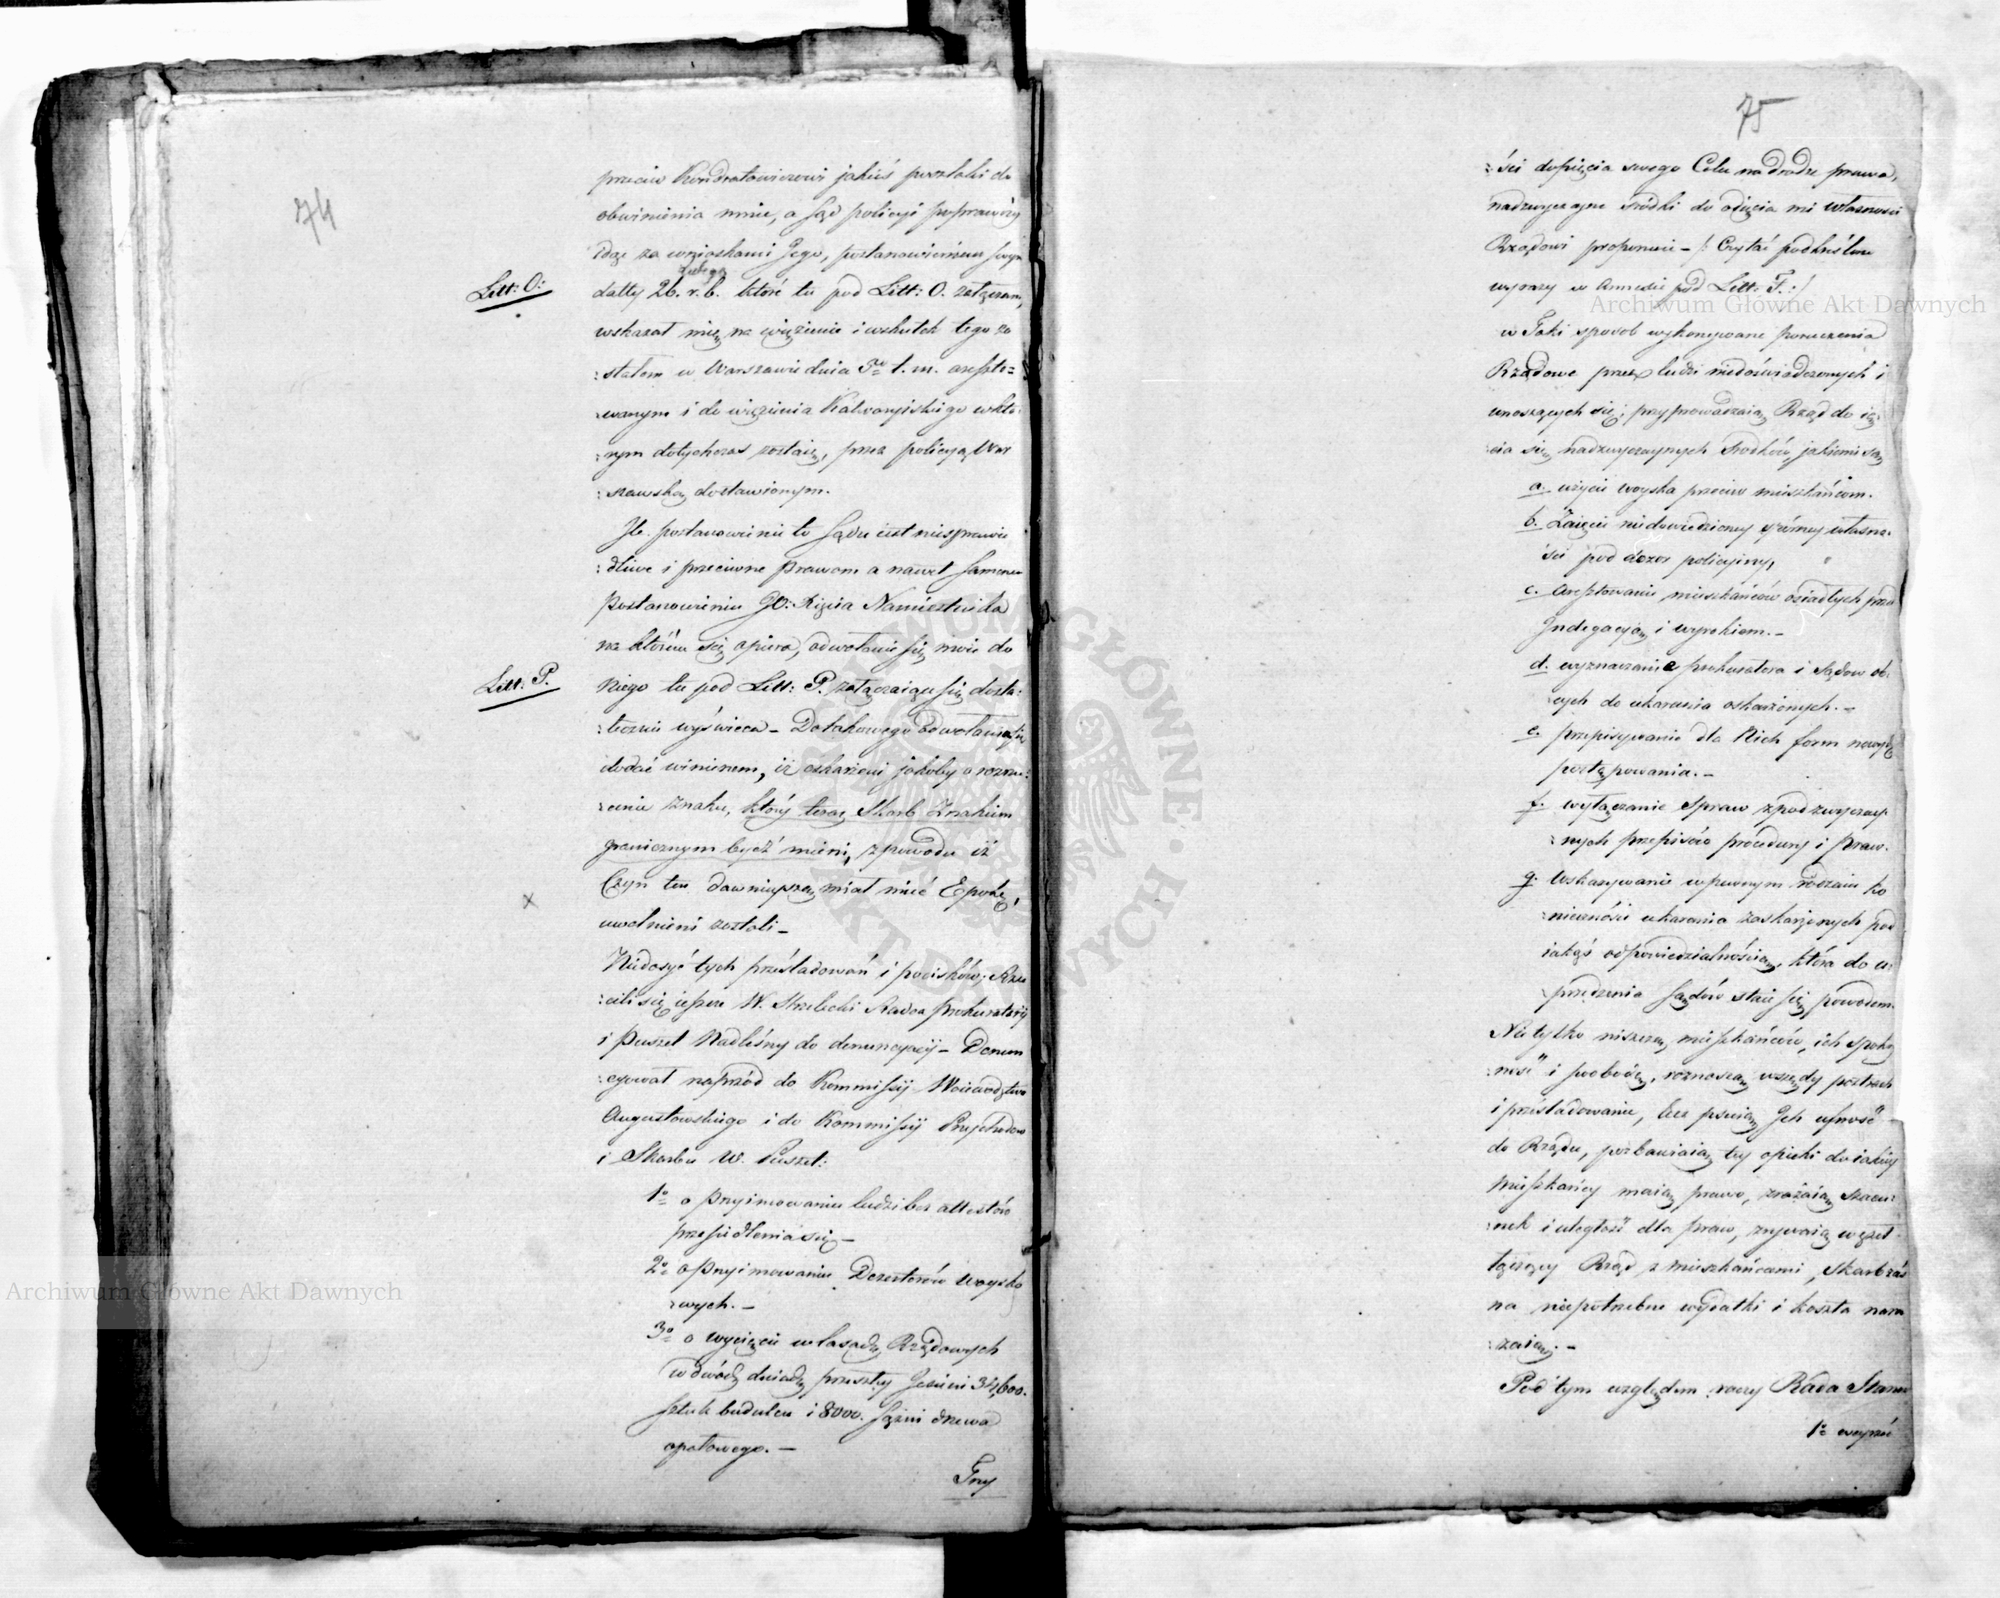 74
przeciw Kondratowiczowi jakieś poszlaki do
obwinienia mnie, a Sąd policyi poprawczey
idąc za wnioskami Jego, postanowieniem swym
Lutego
Litt: O:
datty 26. r. b. które tu pod Litt: O. załączam,
wskazał mię na więzienie i wskutek tego zo
:stałem w Warszawie dnia 3go t. m. areszto=
:wanym i do więzienia Kalwaryiskiego w któ:
:rym dotychczas zostaię, przez policyą War
:szawską dostawionym.
Ile postanowienie to Sądu iest niesprawie
:dliwe i przeciwne Prawom a nawet samemu
Postanowieniu JO: Xięcia Namiestnika
na którem się opiera, odwołanie się moie do
Litt: P.
niego tu pod Litt: P. załączaiące się dosta:
:tecznie wyświeca – Do takowego Odwołania się
dodać winienem, iż oskarżeni jakoby o rozrzu:
:cenie znaku, który teraz Skarb Znakiem
granicznym bydź mieni, z powodu iż
Czyn ten dawnieyszą miał mieć Epokę,
x
uwolnieni zostali –
Niedosyć tych prześladowań i pocisków; Rzu
:cili się ieszcze W. Strzelecki Radca Prokuratoryi
i Puszet Nadleśny do denuncyacyi – Denun
:cyował naprzód do Kommissyi Woiewództwa
Augustowskiego i do Kommissyi Przychodów
i Skarbu W. Puszet:
1o o przyimowaniu ludzi bez attestów
przesiedlenia się –
2o o przyimowaniu Dezerterów Woysko
:wych. –
3o o wycięcie w lasach Rządowych
w dwóch dniach przeszłey Jesieni 34,600.
sztuk budulcu i 8000. sążni drzewa
opałowego. –
Trzy
75
:ści dopięcia swego Celu na drodze prawa,
nadzwyczayne środki do odięcia mi własności
Rządowi proponuie – /: Czytać podkreślone
wyrazy w Annexie pod Litt: F. :/
w Taki sposób wykonywane poruczenia
Rządowe przez ludzi niedoświadczonych i
unoszących się; przyprowadzaią Rząd do ię:
:cia się nadzwyczaynych środków, jakiemi są
a. użycie woyska przeciw mieszkańcom.
b. Zaięcie niedowiedzioney spórney własno:
ści pod dozor policyiny,
c. aresztowanie mieszkańców osiadłych przed
Indegacyą i wyrokiem. –
d. wyznaczanie prokuratora i Sądow ob:
:cych do ukarania oskarżonych. –
e. przepisywanie dla Nich form nowych
postępowania. –
f. wyłączanie Spraw zpod zwyczay
:nych przepisów procedury i Praw.
g. Wskazywanie w pewnym rodzaiu ko
:nieczności ukarania zaskarżonych pod
iakąś odpowiedzialnością, która do u:
:przedzenia Sądów staie się powodem.
Nietylko niszczą mieszkańców, ich spokoy
:ność i swobodę, roznoszą wszędy postrach
i prześladowanie, lecz psuią Ich ufność
do Rządu, pozbawiaią tey opieki do iakiey
Mieszkańcy maią prawo, zrażaią szacu:
:nek i uległość dla praw, zrywaią węzeł
łączący Rząd z Mieszkańcami, Skarb zaś
na niepotrzebne wydatki i koszta nara
:żaią. –
Pod tym względem raczy Rada Stanu
1o wyrzec
Archiwum Główne Akt Dawnych
Archiwum Główne Akt Dawnych
ARCHIWUM GŁÓWNE AKT DAWNYCH